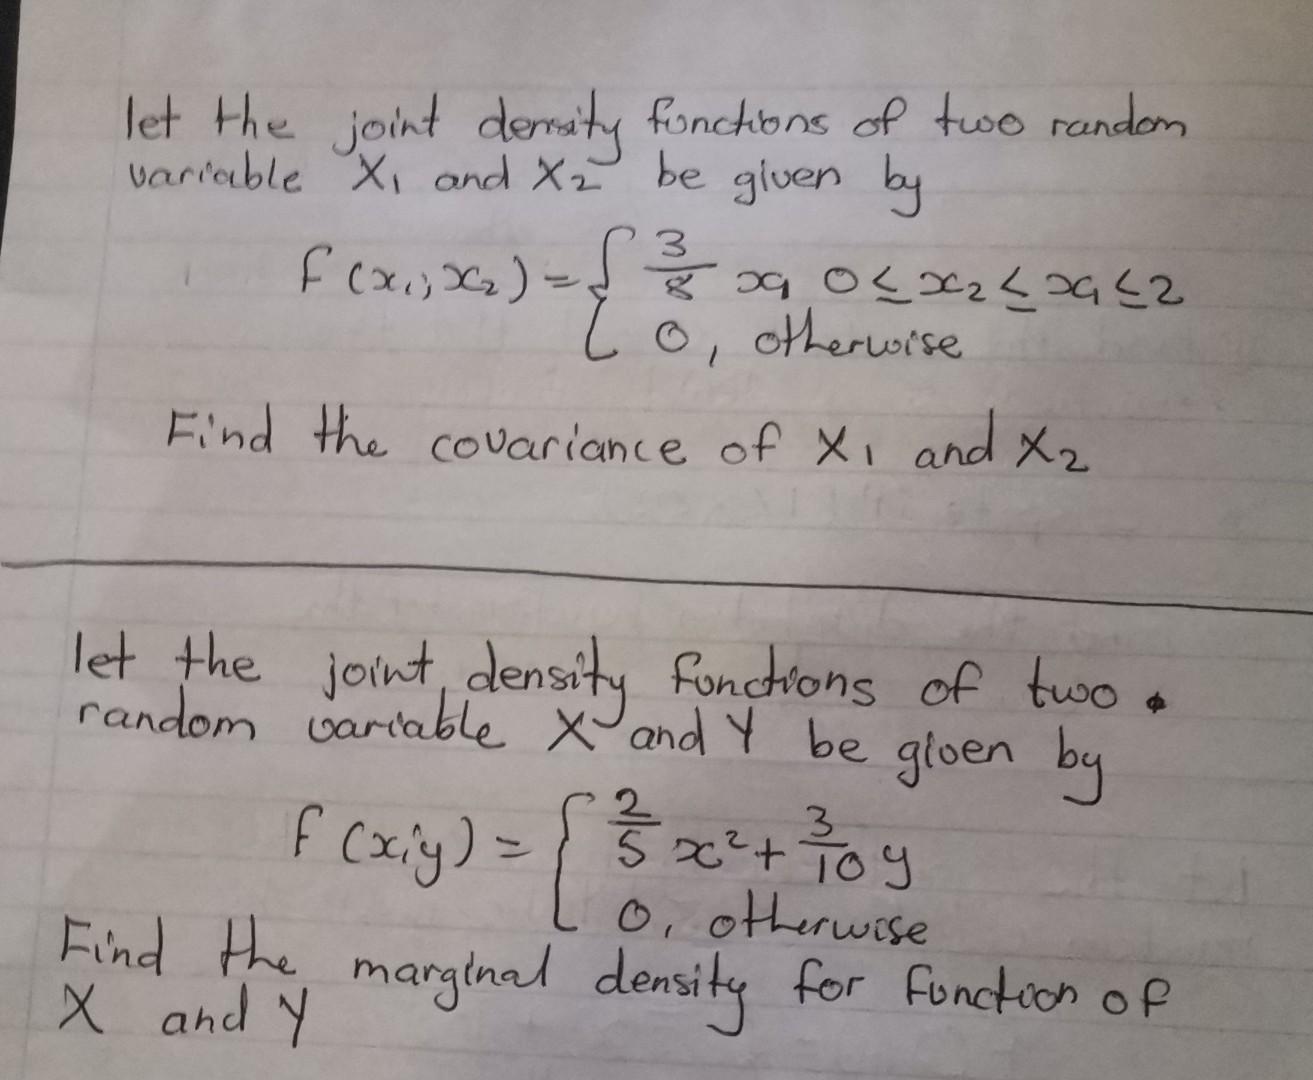 let the joint density functions of two random
variable X₁ and X₂ be given by
f (x₁; x₂) = { 3/8 x₁ 0 ≤ x₂ ≤ x₁ ≤ 2
0, otherwise
Find the covariance of X₁ and X₂
let the joint density functions of two
random variable X and Y be given by
f (x;y) = { 2/5 x² + 3/10 y
0, otherwise
Find the marginal density for function of
X and Y